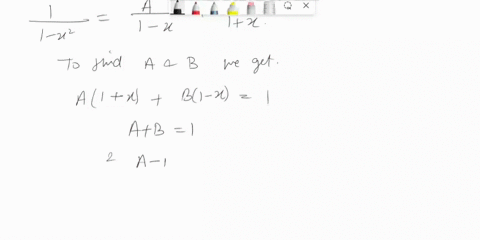 1/(1-x²) = A/(1-x) 1+x
To find A & B we get.
A(1+x) + B(1-x) = 1
A+B = 1
2 A-1